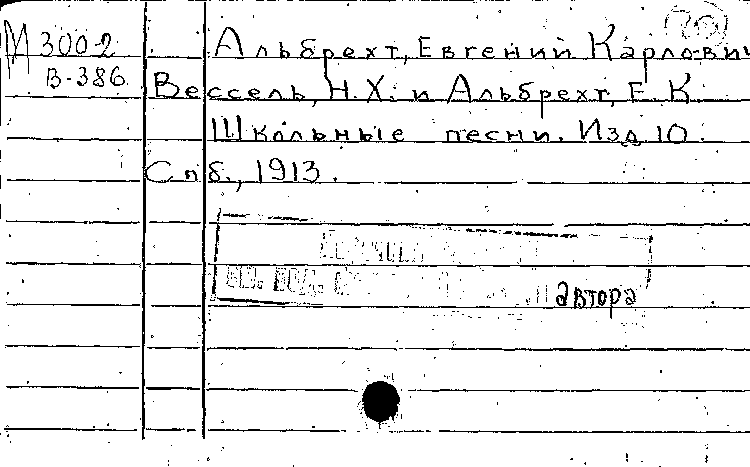 М 3002
В-386
Альбрехт, Евгений Карлович
Вессель, Н. Х. и Альбрехт, Е. К.
Школьные песни. Изд 10.
Спб., 1913.
автора